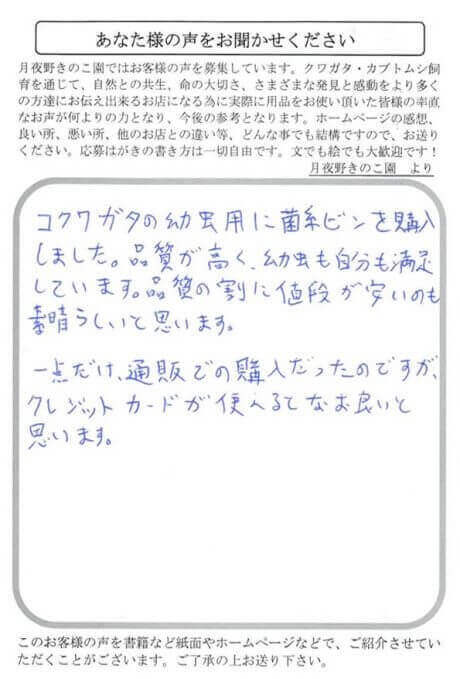 あなた様の声をお聞かせください
月夜野きのこ園ではお客様の声を募集しています。クワガタ・カブトムシ飼
育を通じて、自然との共生、命の大切さ、さまざまな発見と感動をより多く
の方達にお伝え出来るお店になる為に実際に用品をお使い頂いた皆様の率直
なお声が何よりの力となり、今後の参考となります。ホームページの感想、
良い所、悪い所、他のお店との違い等、どんな事でも結構ですので、お送り
ください。応募はがきの書き方は一切自由です。文でも絵でも大歓迎です！
月夜野きのこ園　より
コクワガタの幼虫用に菌糸ビンを購入
しました。品質が高く、幼虫も自分も満足
しています。品質の割に値段が安いのも
素晴らしいと思います。
一点だけ、通販での購入だったのですが、
クレジットカードが使えるとなお良いと
思います。
このお客様の声を書籍など紙面やホームページなどで、ご紹介させてい
ただくことがございます。ご了承の上お送り下さい。